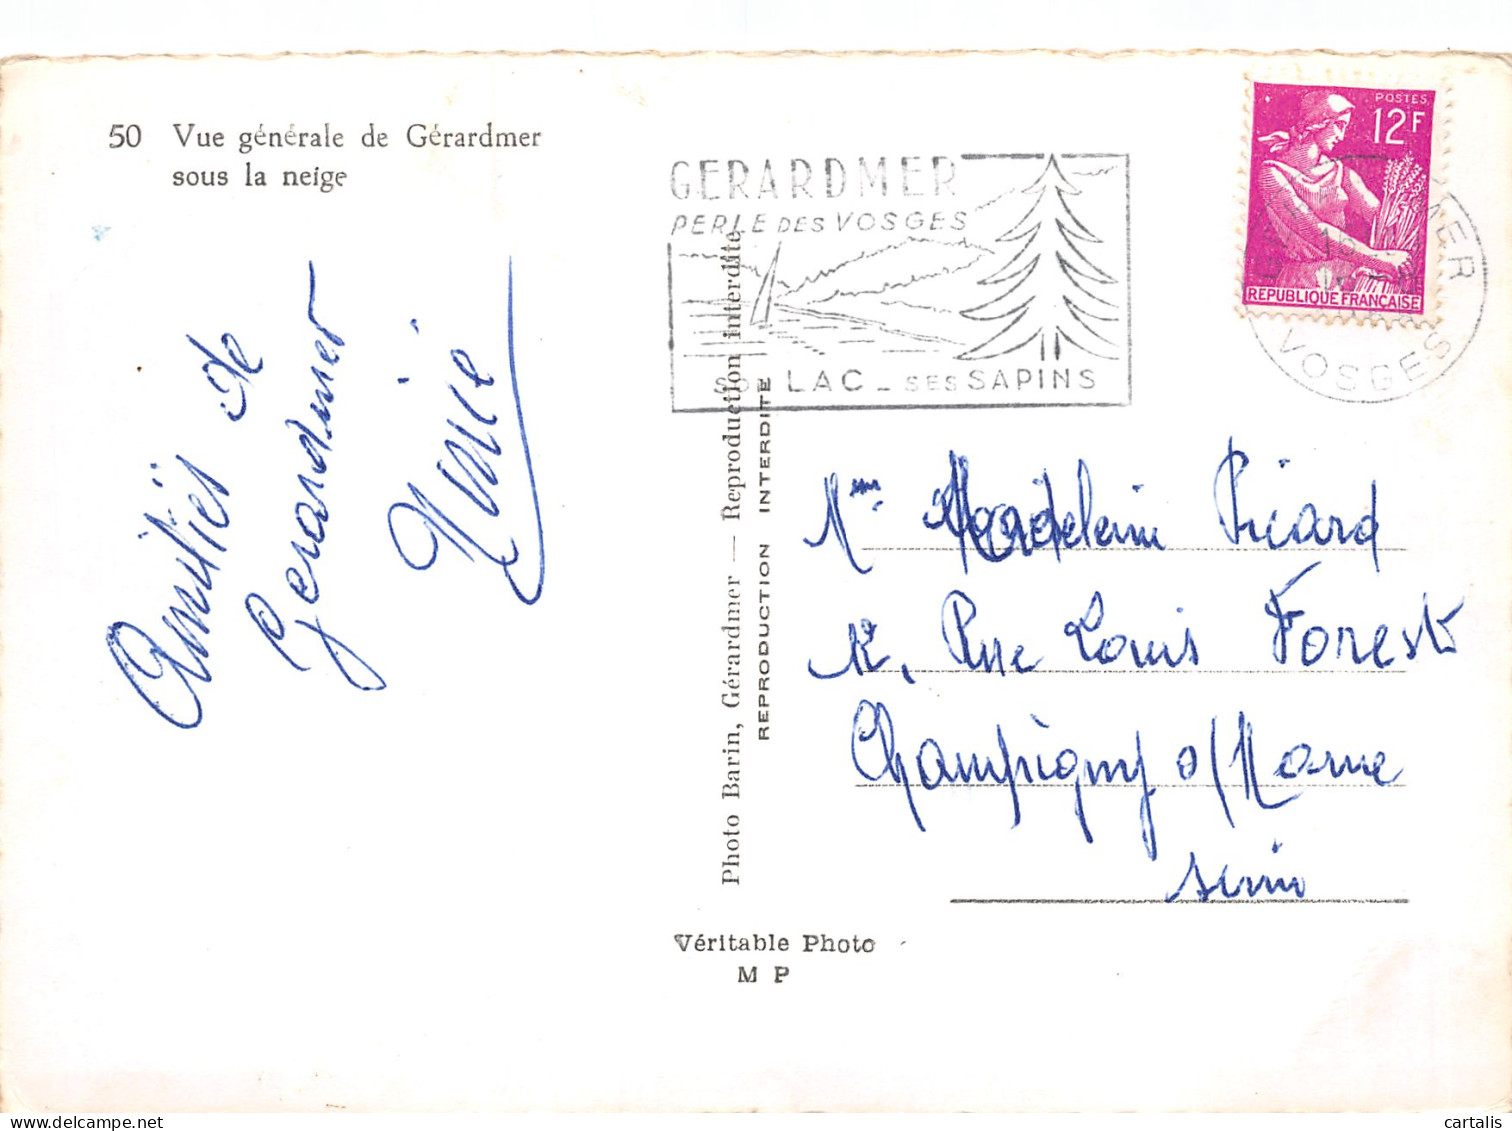 50 Vue générale de Gérardmer
sous la neige
Amitiés de
Gerardmer
GERARDMER
PERLE DES VOSGES
SON LAC - SES SAPINS
POSTES
12F
REPUBLIQUE FRANÇAISE
VOSGES
Photo Barin, Gérardmer — Reproduction interdite
REPRODUCTION INTERDITE
Mme Madeleine Picard
12, Rue Louis Forest
Champigny s/Marne
Seine
Véritable Photo
M P
cartalis